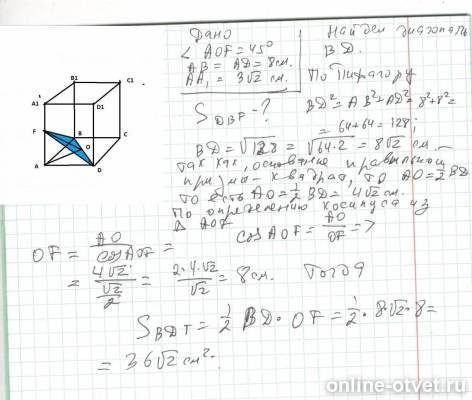 B1
C1
A1
D1
F
B
C
O
A
D
Дано
∠ AOF = 45°
AB = AD = 8 см.
AA₁ = 3√2 см.
S_DBF - ?
Найдем диагональ
BD.
По Пифагору
BD² = AB² + AD² = 8² + 8² =
= 64 + 64 = 128;
BD = √128 = √64·2 = 8√2 см
так как, основание правильной
призмы - квадрат, то AO = ½ BD
то есть AO = ½ BD = 4√2 см.
По определению косинуса из
Δ AOF
cos AOF = AO/OF =>
OF = AO/cos AOF =
= 4√2/(√2/2) = 2·4·√2/√2 = 8 см. Тогда
S_BDF = ½ BD · OF = ½ · 8√2 · 8 =
= 36√2 см².
online-otvet.ru